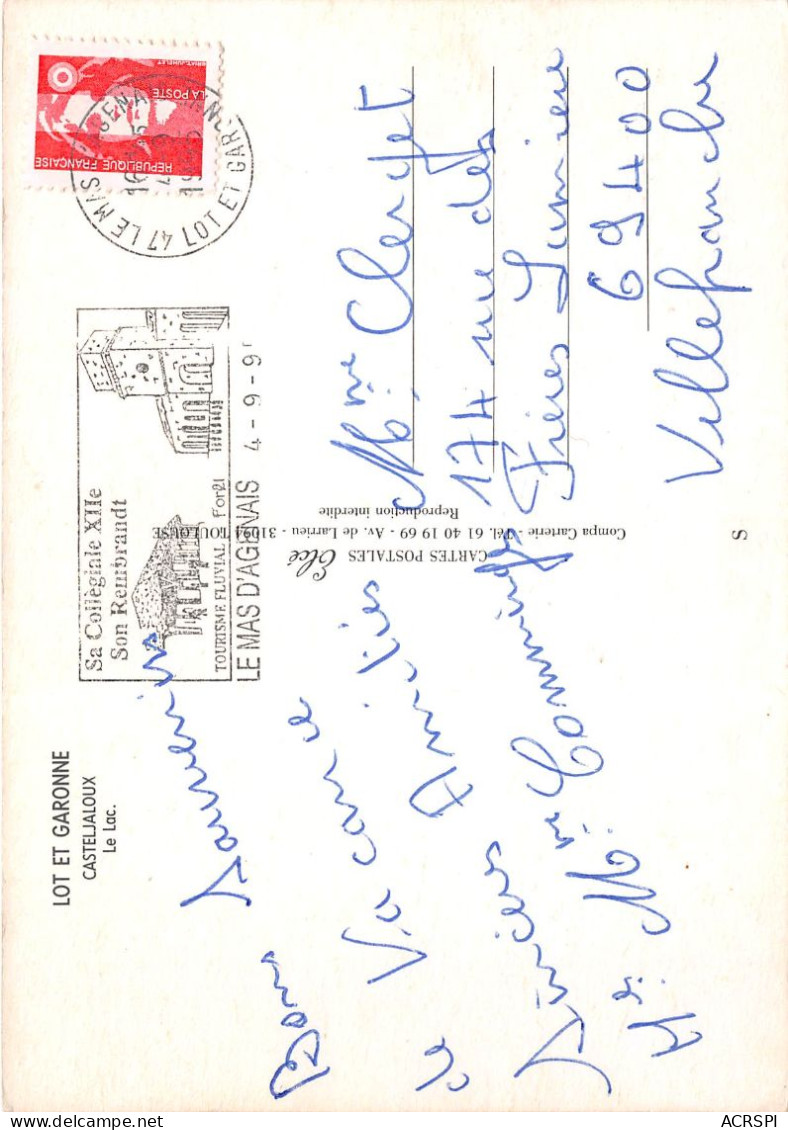 LOT ET GARONNE
CASTELJALOUX
Le Lac.
Bons Souvenirs
de Vacance
Amitiés
Sincères
Mr Mme Comminges
CARTES POSTALES Elcé
Compa Carterie - Tél. 61 40 19 69 - Av. de Larrieu - 31094 TOULOUSE
Reproduction interdite
Sa Collégiale XIIe
Son Rembrandt
TOURISME FLUVIAL
LE MAS D'AGENAIS 4-9-9
47 LE MAS LOT ET GAR
REPUBLIQUE FRANÇAISE
LA POSTE
Mme Clerget
174 rue des
Frères Lumière
69400
Villefranche
S
ACRSPI